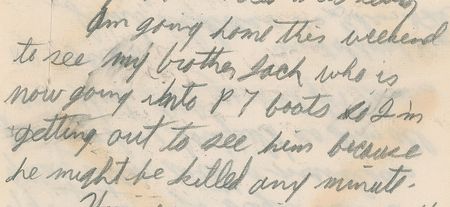 I'm going home this weekend
to see my brother Jack who is
now going into P T boats so I'm
getting out to see him because
he might be killed any minute.